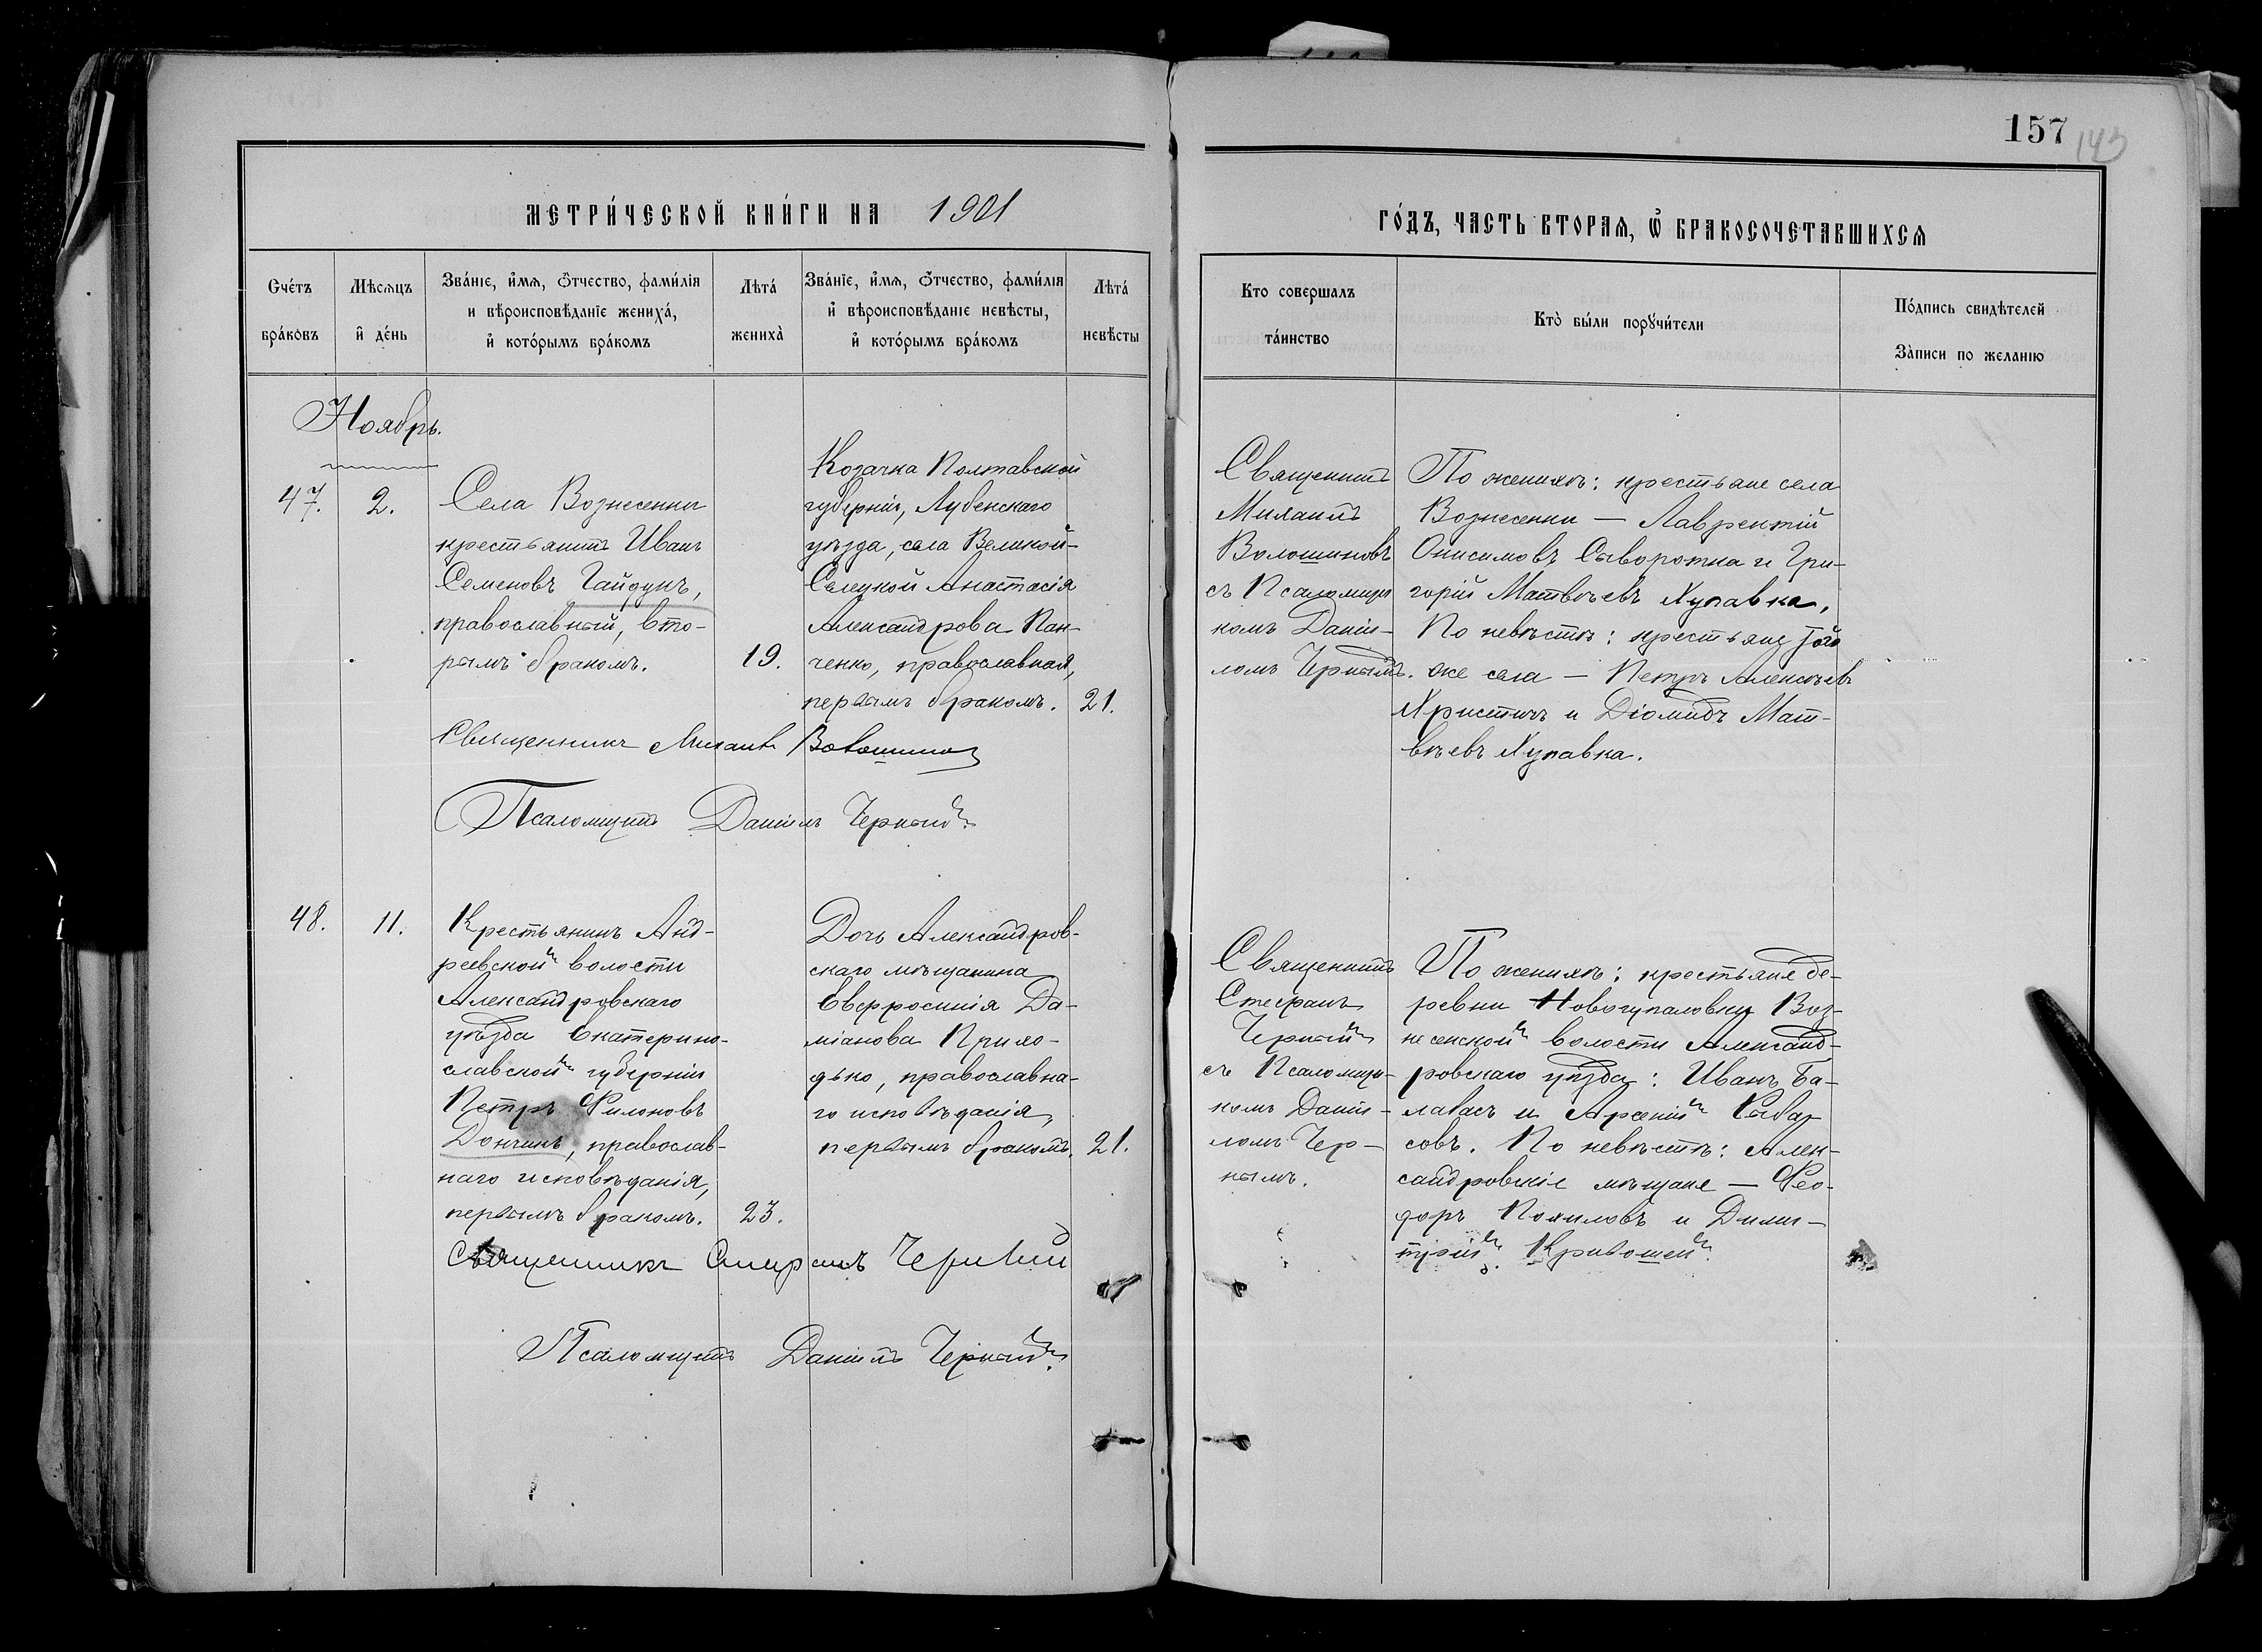 157
143
МЕТРИ́ЧЕСКОЙ КНИ́ГИ НА 1901
ГО́ДЪ, ЧАСТЬ ВТОРАѦ, Ѡ҆ БРАКОСОЧЕТАВШИХСѦ
Счетъ браковъ
Мѣсѧцъ и день
Званіе, имѧ, отчество, фамилія
и вѣроисповѣданіе жениха,
и которымъ бракомъ
Лѣта жениха
Званіе, имѧ, отчество, фамилія
и вѣроисповѣданіе невѣсты,
и которымъ бракомъ
Лѣта невѣсты
Кто совершалъ
таинство
Кто были поручители
Подпись свидѣтелей
Записи по желанію
Ноябрь.
47.
2.
Села Вознесенки
крестьянинъ Иванъ
Семеновъ Гайдукъ,
православный, вто-
рымъ бракомъ.
19.
Козачка Полтавской
губерніи, Лубенскаго
уѣзда, села Великой-
Селецкой Анастасія
Александрова Пан-
ченко, православная,
первымъ бракомъ.
21.
Священникъ
Михаилъ
Волошиновъ
съ Псаломщи
комъ Даніи-
ломъ Чернымъ.
По женихѣ: крестьяне села
Вознесенки — Лаврентій
Онисимовъ Сыворотка и Гри-
горій Матвѣевъ Хупавка.
По невѣстѣ: крестьяне того
же села — Петръ Алексѣевъ
Христичъ и Діомидъ Мат-
вѣевъ Хупавка.
Священникъ Михаилъ Волошиновъ
Псаломщикъ Даніилъ Черный.
48.
11.
Крестьянинъ Анд-
реевской волости
Александровскаго
уѣзда Екатерино-
славской губерніи
Петръ Филоновъ
Дончикъ, православ-
наго исповѣданія,
первымъ бракомъ.
23.
Дочь Александров-
скаго мѣщанина
Евфросинія Да-
міанова Прихо-
дько, православна-
го исповѣданія,
первымъ бракомъ.
21.
Священникъ
Стефанъ
Черный
съ Псаломщи-
комъ Даніи-
ломъ Чер-
нымъ.
По женихѣ: крестьяне де-
ревни Новогупаловки Воз-
несенской волости Александ-
ровскаго уѣзда: Иванъ Ба-
лабасъ и Арсеній
По невѣстѣ: Алек-
сандровскіе мѣщане — Фео-
доръ Похиловъ и Дими-
трій Кривошей.
Священникъ Стефанъ Черный
Псаломщикъ Даніилъ Черный.